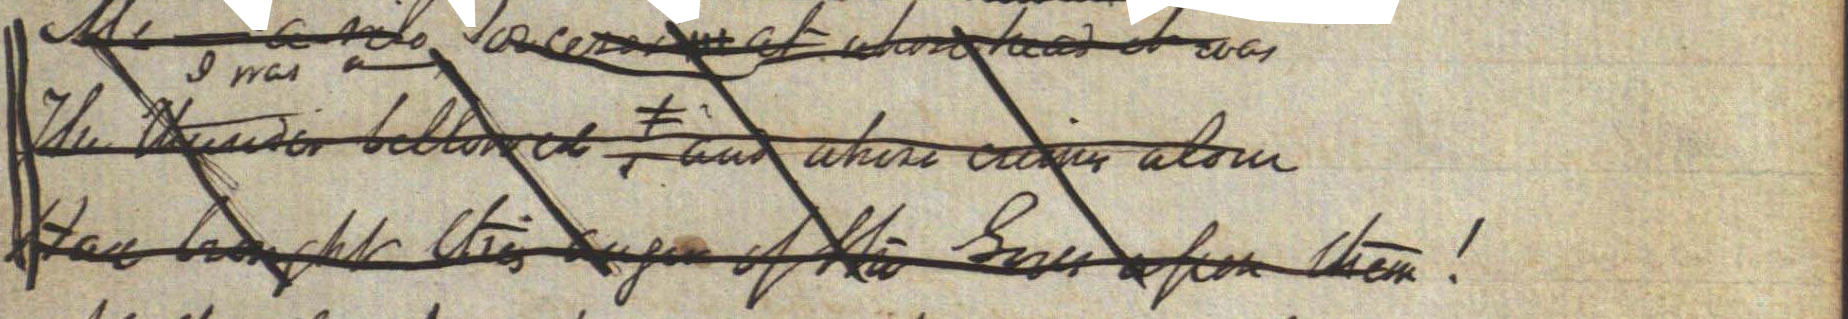 Me — a vile Sorcerer at whose head it was
I was a
The thunder bellowed — and whose crimes alone
Had brought this anger of the Gods upon them!